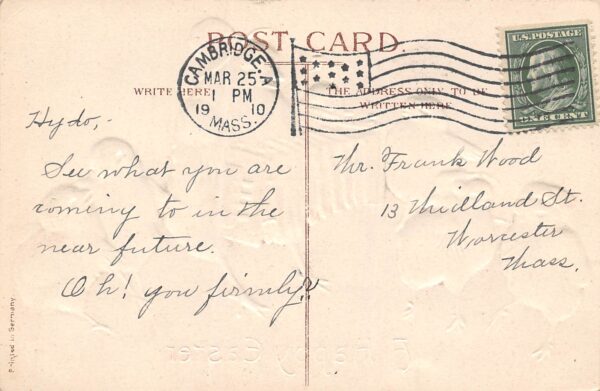 POST CARD
CAMBRIDGE.A
MAR 25
1 PM
19 10
MASS.
U.S. POSTAGE
ONE CENT
WRITE HERE
THE ADDRESS ONLY TO BE
WRITTEN HERE
Hydo,-
See what you are
coming to in the
near future.
Oh! you firmly!!
Mr. Frank Wood
13 Midland St.
Worcester
Mass.
Printed in Germany
Happy Easter